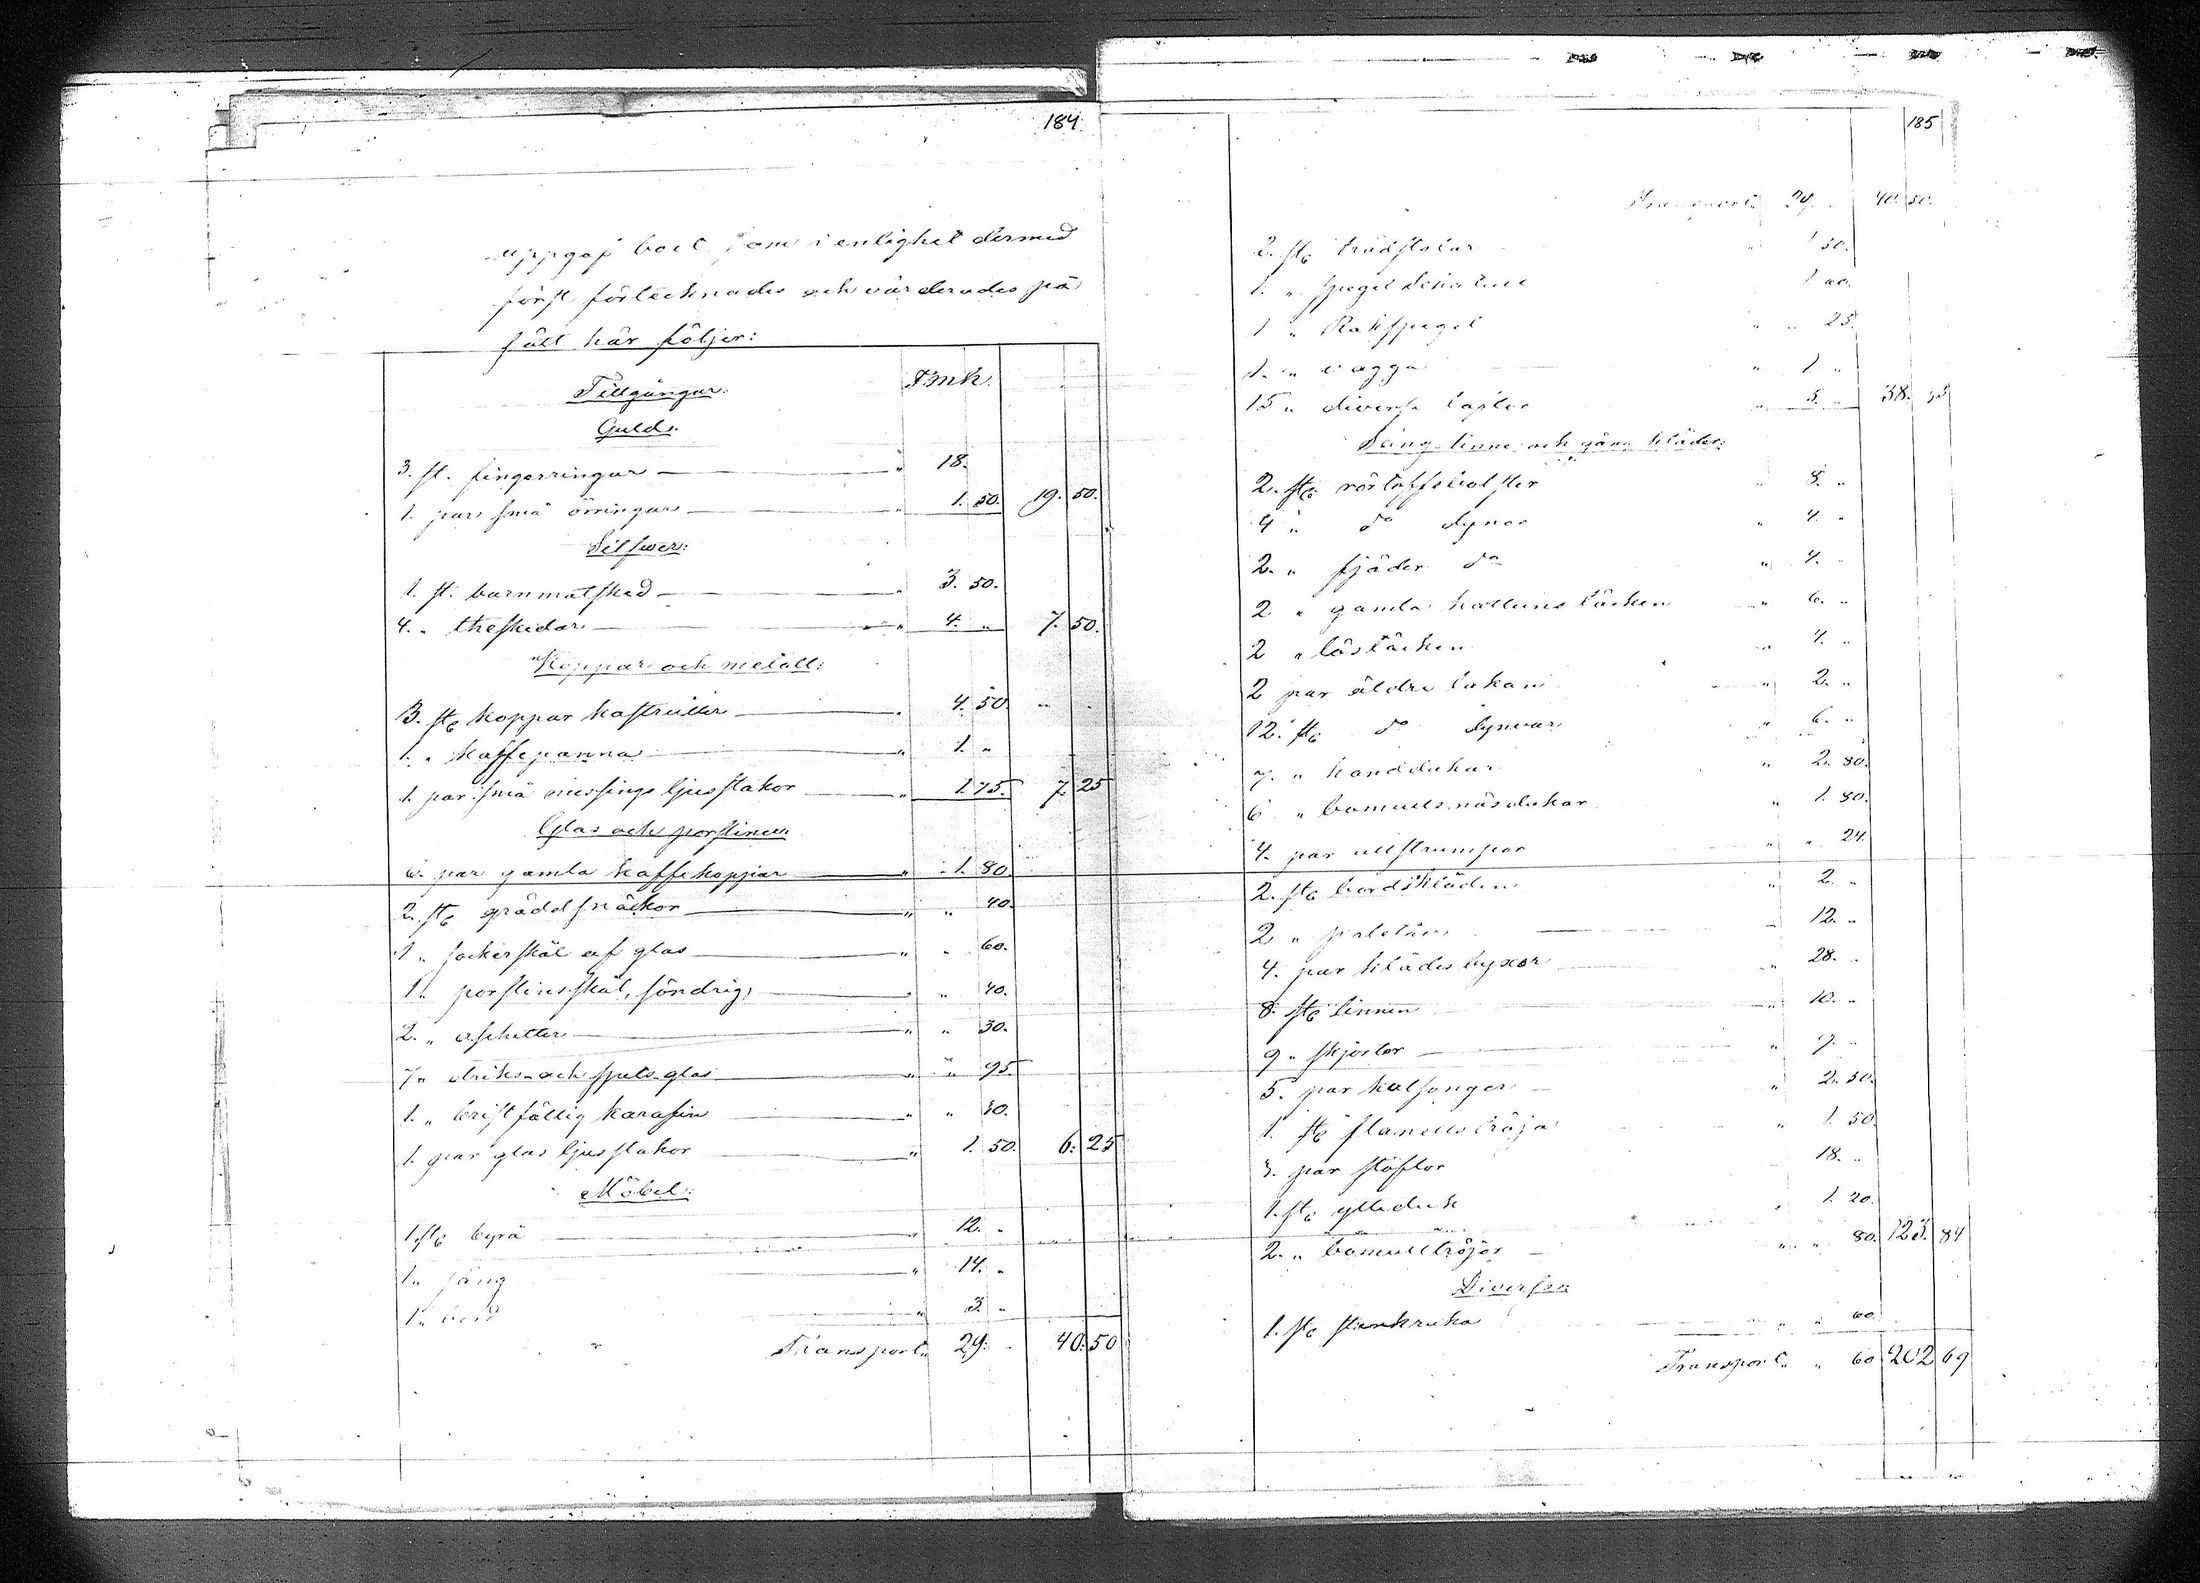 184
uppgaf boet som i enlighet dermed
först förtecknades och värderades på
sätt här följer:
Tillgångar. Fmk.
Guld.
3. st. fingerringar " 18.
1. par små örringar " 1. 50. 19. 50.
Silfwer:
1. st. barnmatsked " 3. 50.
4. " theskedar " 4. " 7. 50.
Koppar och metall:
3. stc koppar kastruller " 4. 50.
1. " kaffepanna " 1. "
1. par små messings ljusstakor " 1. 75. 7. 25
Glas och porslin
6. par gamla kaffekoppar " 1. 80.
2. stc gräddsnäckor " " 40.
1 " sockerskål af glas " " 60.
1 " porslinsskål, söndrig, " " 40.
2. " asietter " " 30.
7 " driks- och spets-glas " " 95.
1. " bristfällig karafin " " 30.
1. par glas ljusstakor " 1. 50. 6. 25
Möbel:
1 stc byrå " 12. "
1 " säng " 14. "
1 " bord " 3. "
Transport. 29. " 40. 50
185
Transport. 29. " 40. 50.
2. stc trädstolar " 1 50.
1. " spegel 1
1 " Rakspegel " " 25.
1. " vagga " 1 "
15 " diverse taflor " 5. " 38. 35
Säng- linne och gång kläder:
2. stc rörtaffsbolster " 8. "
4 " do dynor " 4. "
2. " fjäder do " 4. "
2 " gamla kattuns täcken " 6. "
2 " lästäcken " 4. "
2 par äldre lakan " 2. "
12. stc do dynvar " 6. "
7. " handdukar " 2. 80.
6 " bomulls näsdukar " 1. 80.
4. par ullstrumpor " " 24.
2. stc bordskläden " 2. "
2 " paletåer 12. "
4. par klädes byxor " 28. "
8. stc linnen " 10. "
9. " skjortor " 9. "
5. par kalsonger " 2. 50.
1. stc flanellströja " 1. 50
3. par stöflor 18. "
1. stc ylleduk " 1. 20.
2. " bomullströjor " " 80. 123. 84
Diverse:
1. stc stenkruka " " 60
Transport. " 60 202 69